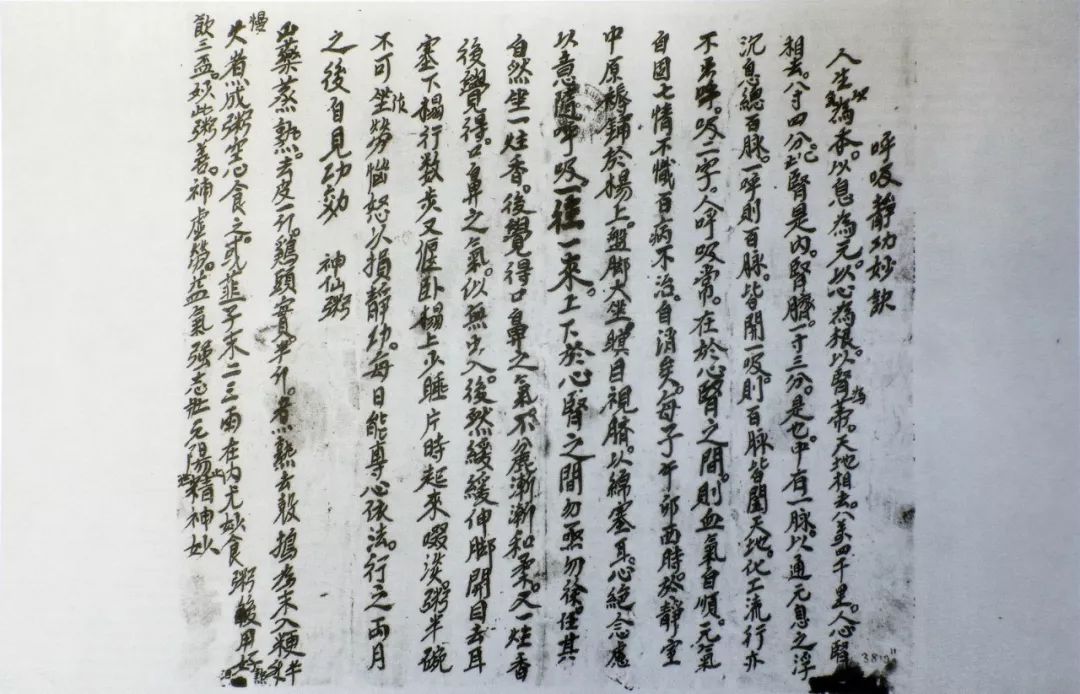 呼吸靜功妙訣
人生以炁為本。以息為元。以心為根。以腎為蒂。天地相去。八萬四千里。人心腎
相去。八寸四分。此腎是內。腎臍一寸三分。是也。中有一脉。以通元息之浮
沉息總百脉。一呼則百脉。皆開一吸則百脉皆闔天地。化工流行亦
不出呼。吸二字。人呼吸常。在於心腎之間。則血氣自順。元氣
自固七情不熾百病不治。自消矣。每子午卯酉時。於靜室
中厚褥鋪於榻上。盤脚大坐瞑目視臍。以綿塞耳。心絕念慮
以意隨呼吸一往一來。上下於心腎之間勿亟勿徐。任其
自然坐一炷香。後覺得口鼻之氣不麁漸漸和柔。又一炷香
後覺得。口鼻之氣。似無出入。後然緩緩伸脚開目去耳
塞下榻行數步又偃卧榻上少睡片時起來啜淡粥半碗
不可作勞惱怒以損靜功。每日能專心依法。行之兩月
之後自見功効 神仙粥
山藥蒸熟。去皮一斤。鷄頭實半斤。煮熟去殼搗為末入粳半升
慢火煮成粥空心食之。或韭子末二三兩在內尤妙食粥後用好熱酒
飲三盃。妙此粥。善補虛勞。益氣強志壯元陽精神妙